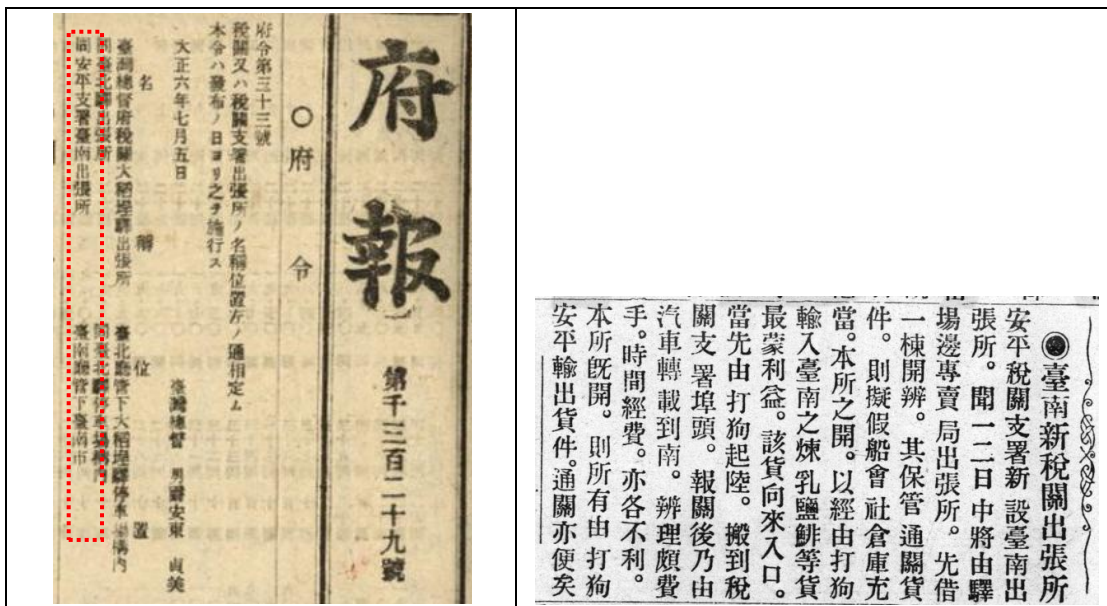 府報 第千三百二十九號
○府令
府令第三十三號
稅關又ハ稅關支署出張所ノ名稱位置左ノ通相定ム
本令ハ發布ノ日ヨリ之ヲ施行ス
大正六年七月五日
臺灣總督 男爵安東 貞美
名稱 位置
臺灣總督府稅關大稻埕驛出張所 臺北廳管下大稻埕驛停車場構內
同臺北驛出張所 同臺北驛停車場構內
同安平支署臺南出張所 臺南廳管下臺南市
◉臺南新稅關出張所
安平稅關支署新設臺南出
張所。聞一二日中將由驛
場邊專賣局出張所。先借
一棟開辨。其保管通關貨
件。則擬假船會社倉庫充
當。本所之開。以經由打狗
輸入臺南之煉乳鹽鯡等貨
最蒙利益。該貨向來入口。
當先由打狗起陸。搬到稅
關支署埠頭。報關後乃由
汽車轉載到南。辨理頗費
手。時間經費。亦各不利。
本所旣開。則所有由打狗
安平輸出貨件。通關亦便矣